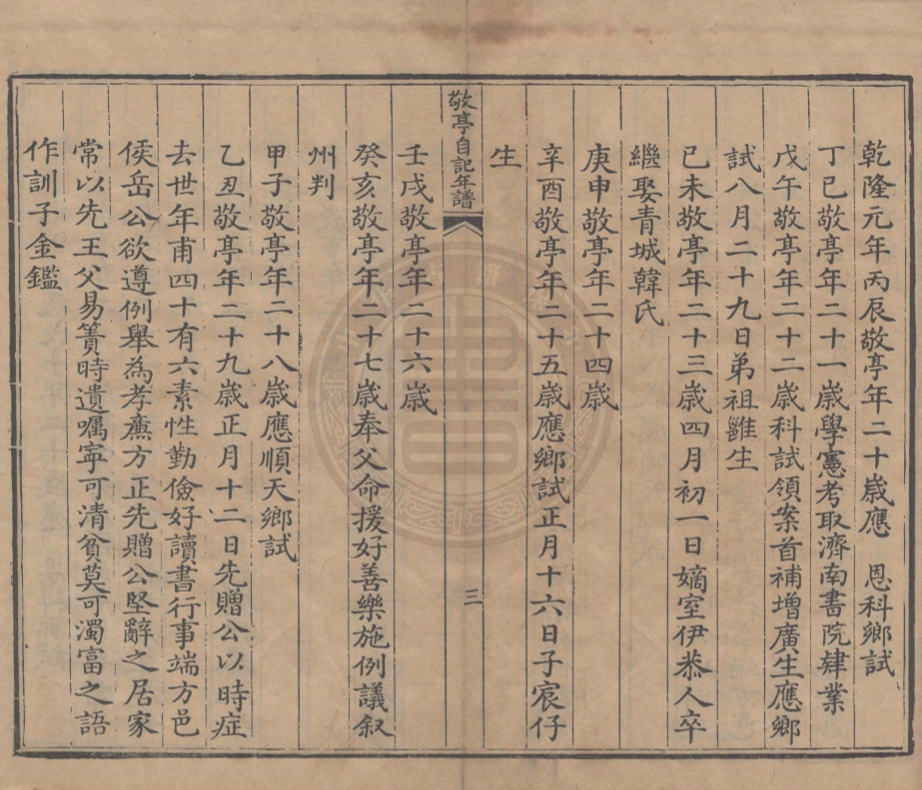 乾隆元年丙辰敬亭年二十歲應 恩科鄉試
丁巳敬亭年二十一歲學憲考取濟南書院肄業
戊午敬亭年二十二歲科試領案首補增廣生應鄉
試八月二十九日弟祖雝生
己未敬亭年二十三歲四月初一日嫡室伊恭人卒
繼娶青城韓氏
庚申敬亭年二十四歲
辛酉敬亭年二十五歲應鄉試正月十六日子宸仔
生
敬亭自記年譜
三
壬戌敬亭年二十六歲
癸亥敬亭年二十七歲奉父命援好善樂施例議叙
州判
甲子敬亭年二十八歲應順天鄉試
乙丑敬亭年二十九歲正月十二日先贈公以時症
去世年甫四十有六素性勤儉好讀書行事端方邑
侯岳公欲遵例舉為孝亷方正先贈公堅辭之居家
常以先王父易簀時遺囑寧可清貧莫可濁富之語
作訓子金鑑